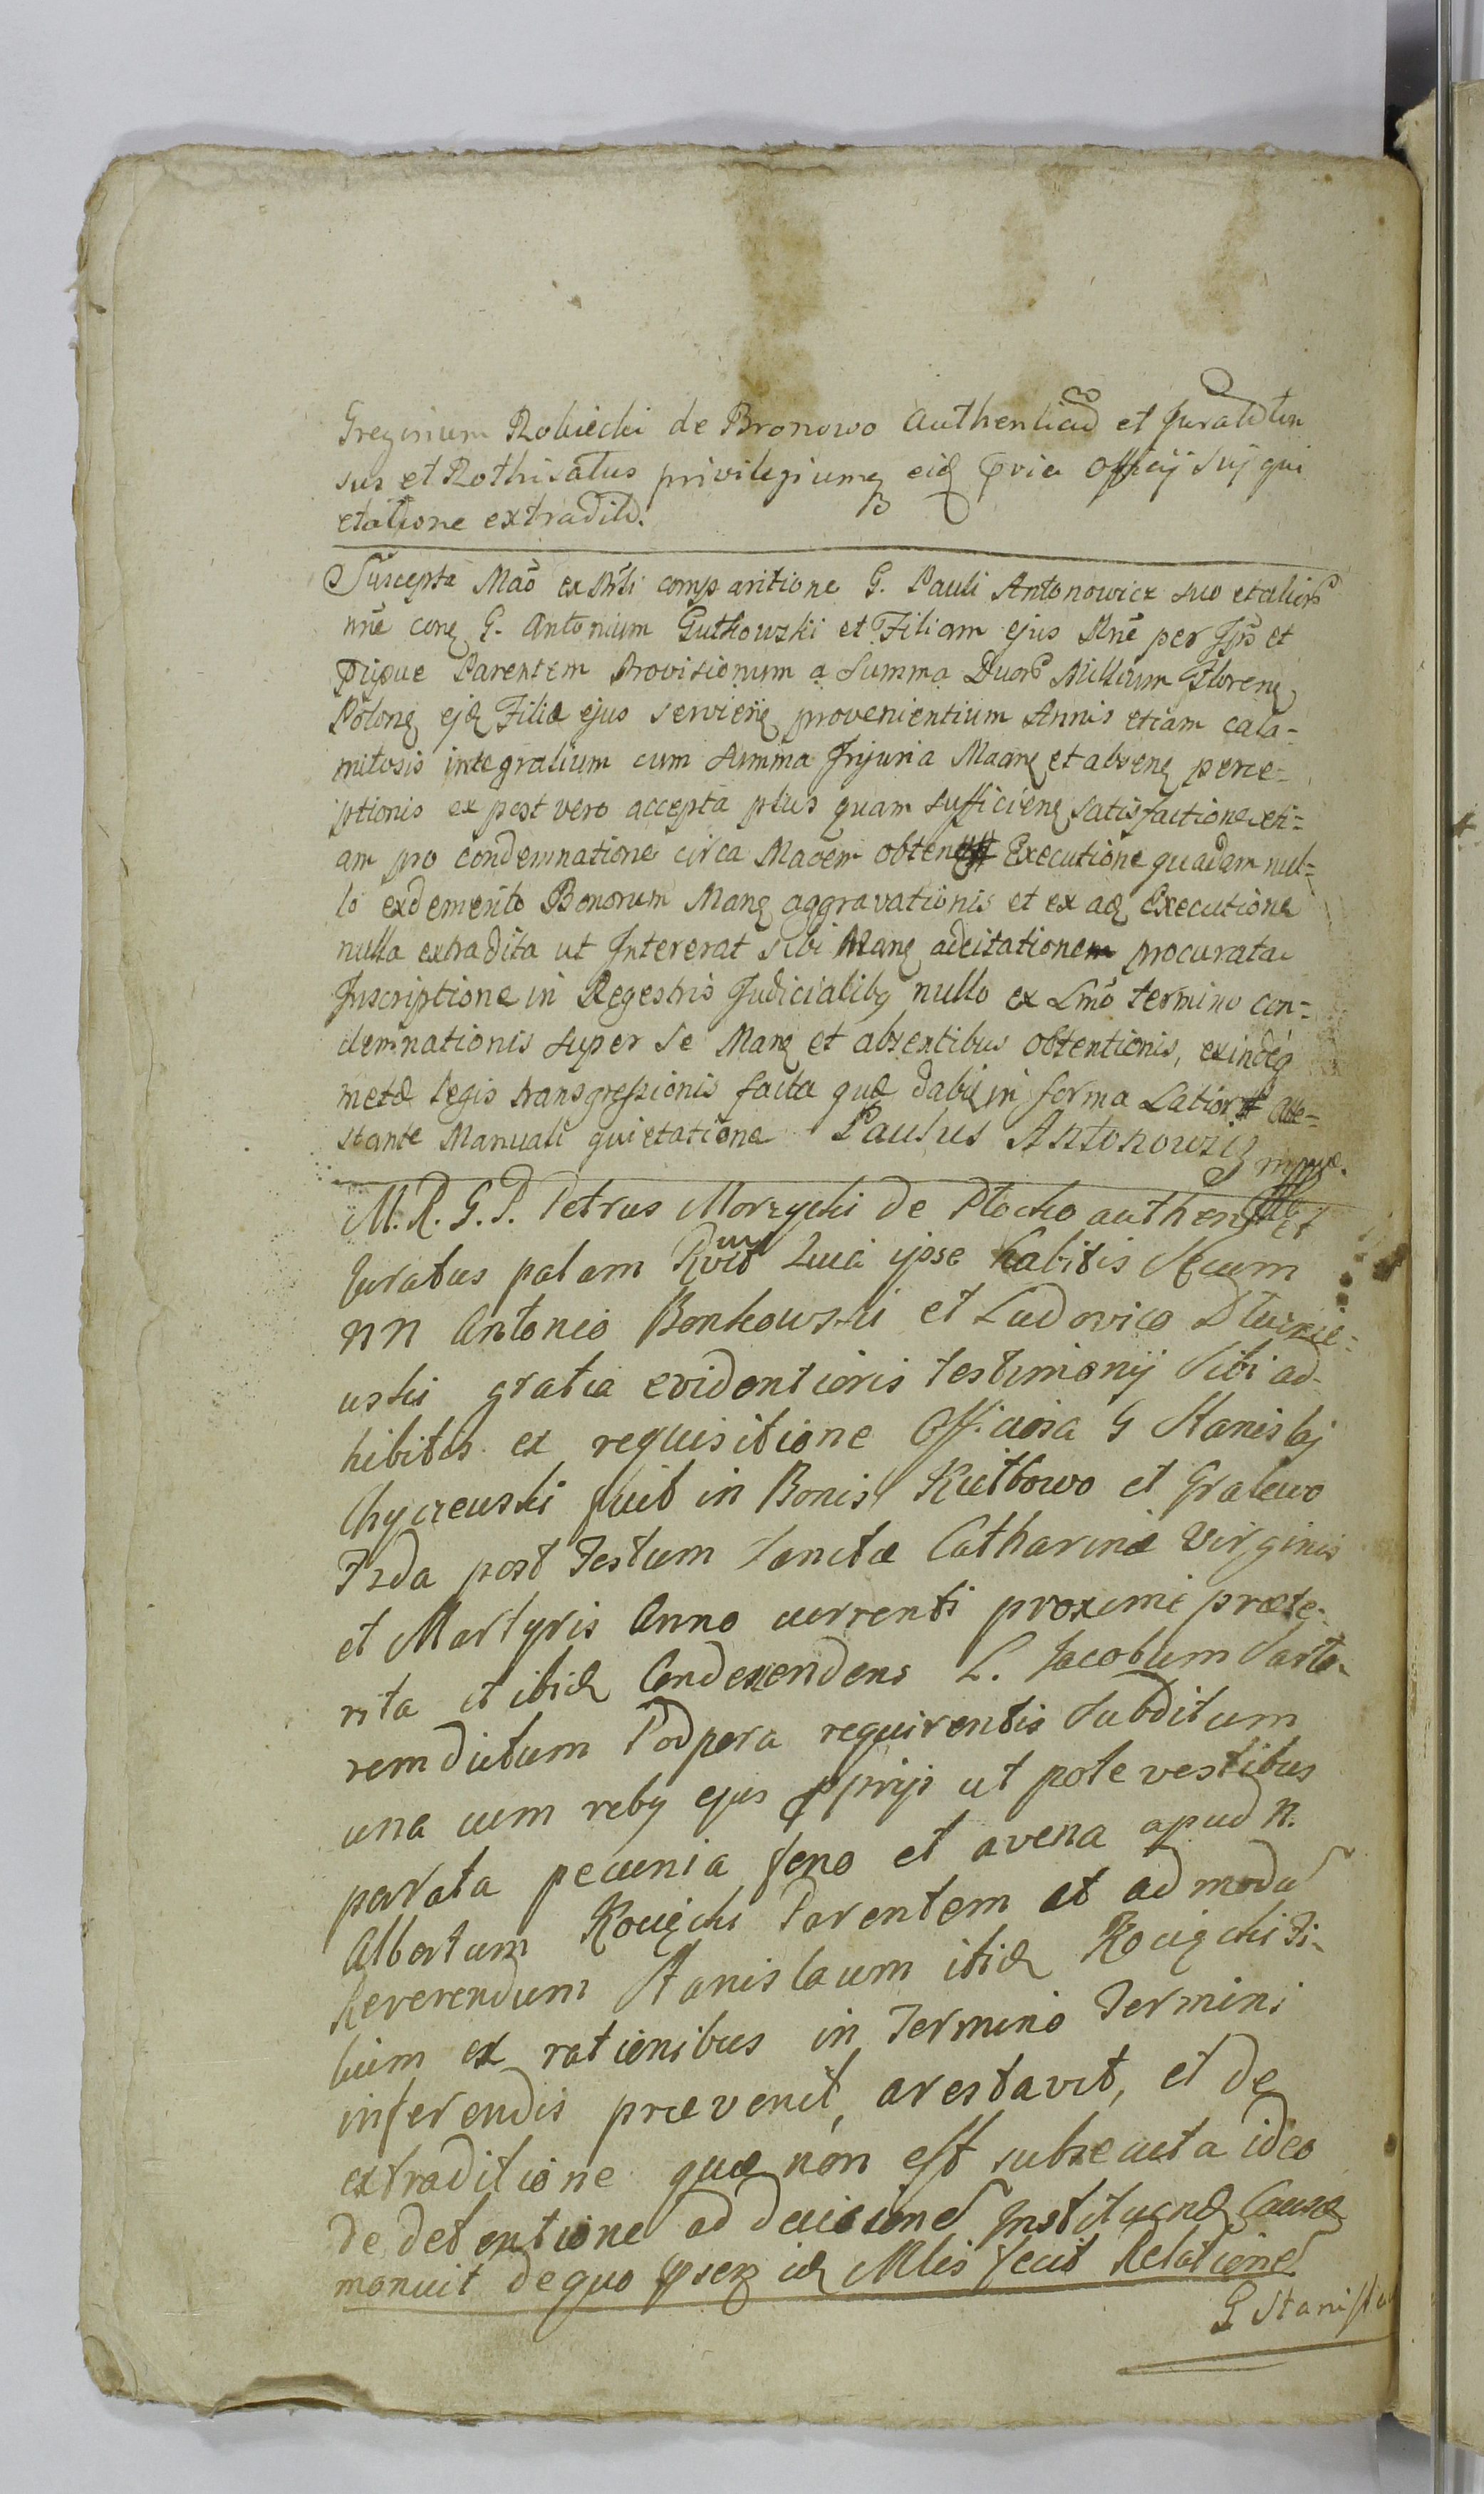 Greginum Robiecki de Bronowo Authenticũ et Juratũ
sus et Rothisatus privilegiumq eidē pvia Officij Sui qui
etatione extraditũ.
Suscepta Mão ex Nrli comparitione G. Pauli Antonowicz suo et alior
nñe conq G. Antonium Gutkowski et Filiam ejus Nñe per Ipm et
Parentem Provisionum a Summa Duor Millium Floreng
Polong ejq Filiæ ejus servieng provenientium Annis etiam cala-
mitosis integralium cum summa Injuria Maang et abseng perce-
ptionis ex post vero accepta plus quam sufficieng satisfactione eti-
am pro condemnatione circa Macem obteng Executione quadam nul-
lo exdemerito Bonorum Mang aggravationis et ex aq Executione
nulla extradita ut Intererat sibi Mang adcitationem procurata
Inscriptione in Regestris Judicialibq nullo ex Lmõ termino con-
demnationis super se Mang et absentibus obtentionis, exindeq
metæ legis transgressionis facta quæ dabit in forma Latiori atte-
stante Manuali quietatione Paulus Antonowicz mppa.
M. R. G. P. Petrus Morzycki de Plocko authen et
Juratus palam Rvit Quia ipse habitis Secum
NN Antonio Bonkowski et Ludovico Dluznie-
uski gratia evidentioris testimonij Sibi ad-
hibitis ex requisitione Officiosa G Stanislaj
Chyczewski fuit in Bonis Kutkowo et Gralewo
Frda post Festum Sanctæ Catharinæ Virginis
et Martyris Anno currenti proxime præte-
rita et ibidē Condescendens L. Jacobum Sarto-
rem dictum Podpora requirentis Subditum
una cum rebq ejus pprijs ut pote vestibus
parata pecunia feno et avena apud N.
Albertum Kocięcki Parentem et admodū
Reverendum Stanislaum itidē Kocięcki Fi-
lium ex rationibus in Termino Termini
inferendis prævenit, arestavit, et de
extraditione quæ non est subsecuta ideo
de detentione ad decisionē Instituendæ Causæ
monuit de quo psenq idē Mlis fecit Relationē
G Stanisla